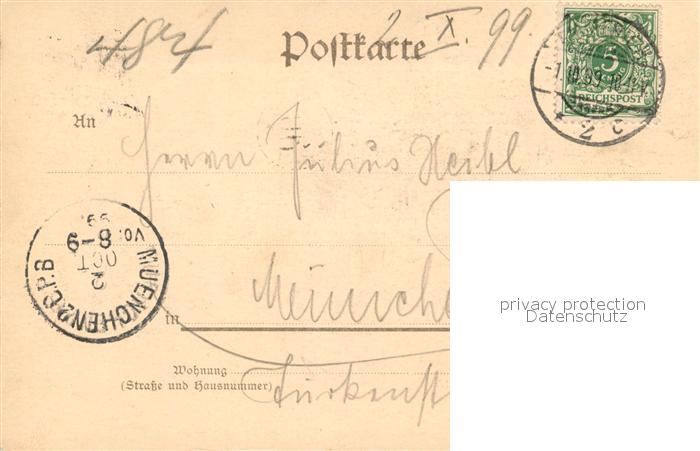 484
Postkarte
2 X. 99.
5
REICHSPOST
An
Herrn Julius
99.
VOR. 8-9
OCT
2
MUENCHEN 2. C.P.B
München
in
privacy protection
Datenschutz
Wohnung
(Straße und Hausnummer)
Türkenst